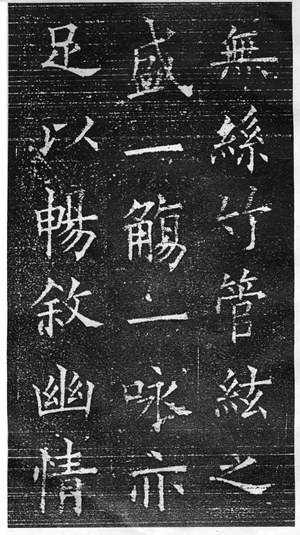 無絲竹管絃之
盛一觴一詠亦
足以暢敘幽情